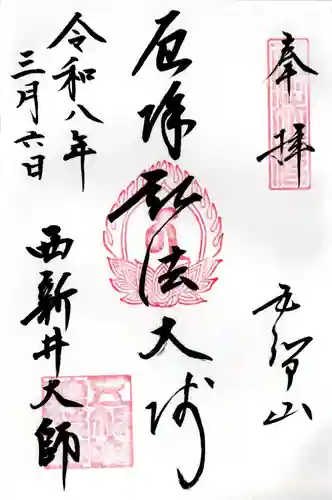 奉拝
五智山
厄除弘法大師
令和八年
三月六日
西新井大師